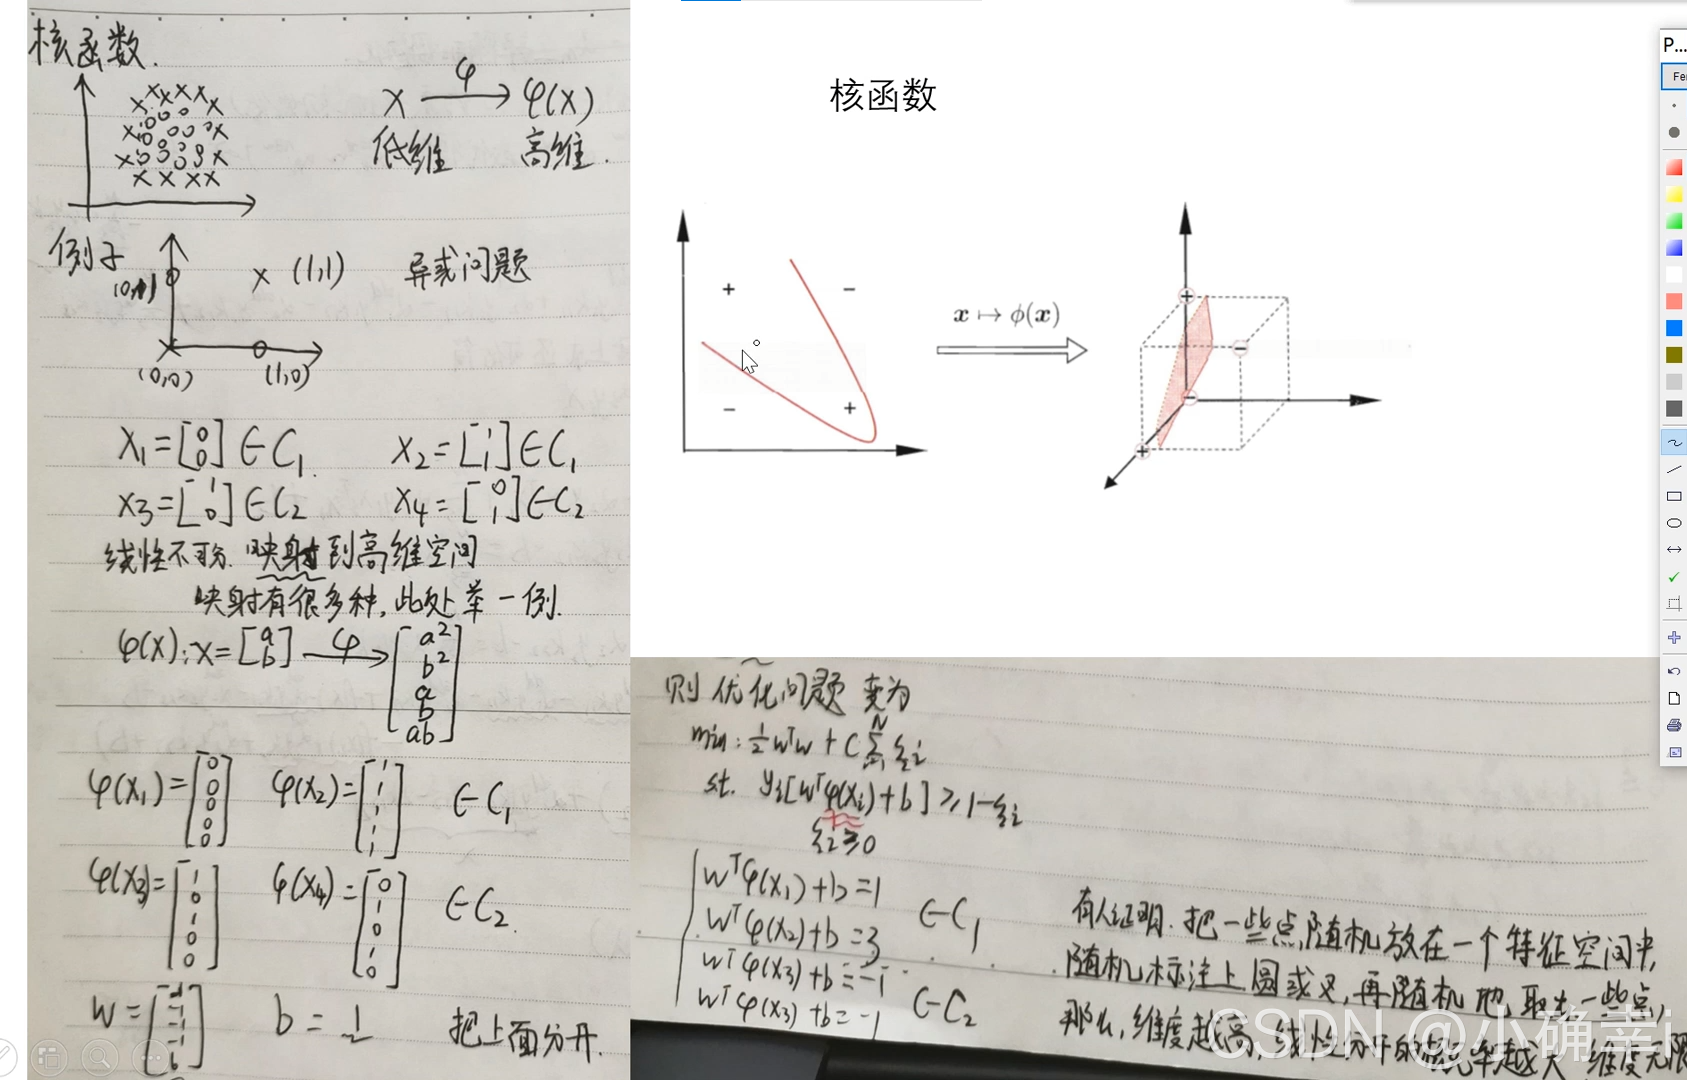 核函数.
x —φ→ φ(x)
低维 高维.
例子
(0,1) × (1,1) 异或问题
(0,0) (1,0)
x₁=[0 0]∈C₁. x₂=[1 1]∈C₁
x₃=[1 0]∈C₂ x₄=[0 1]∈C₂
线性不可分. 映射到高维空间
映射有很多种,此处举一例.
φ(x): x=[a b] —φ→ [a² b² a b ab]
φ(x₁)=[0 0 0 0 0] φ(x₂)=[1 1 1 1 1] ∈C₁
φ(x₃)=[1 0 1 0 0] φ(x₄)=[0 1 0 1 0] ∈C₂.
w=[-1 -1 -1 -1 6] b=1 把上面分开.
核函数
+ −
− +
x ↦ ϕ(x)
+
−
−
+
P...
Fe
则优化问题变为
min: ½wᵀw + C∑ξi
st. yi[wᵀφ(xi)+b]≥1-ξi
ξi≥0
wᵀφ(x₁)+b=1
wᵀφ(x₂)+b=3 ∈C₁
wᵀφ(x₃)+b=-1
wᵀφ(x₃)+b=-1 ∈C₂
有人证明.把一些点,随机放在一个特征空间中,
随机标注上圆或叉,再随机地取出一些点,
那么,维度越高,线性分开的概率越大 维度无限
CSDN @小确幸i